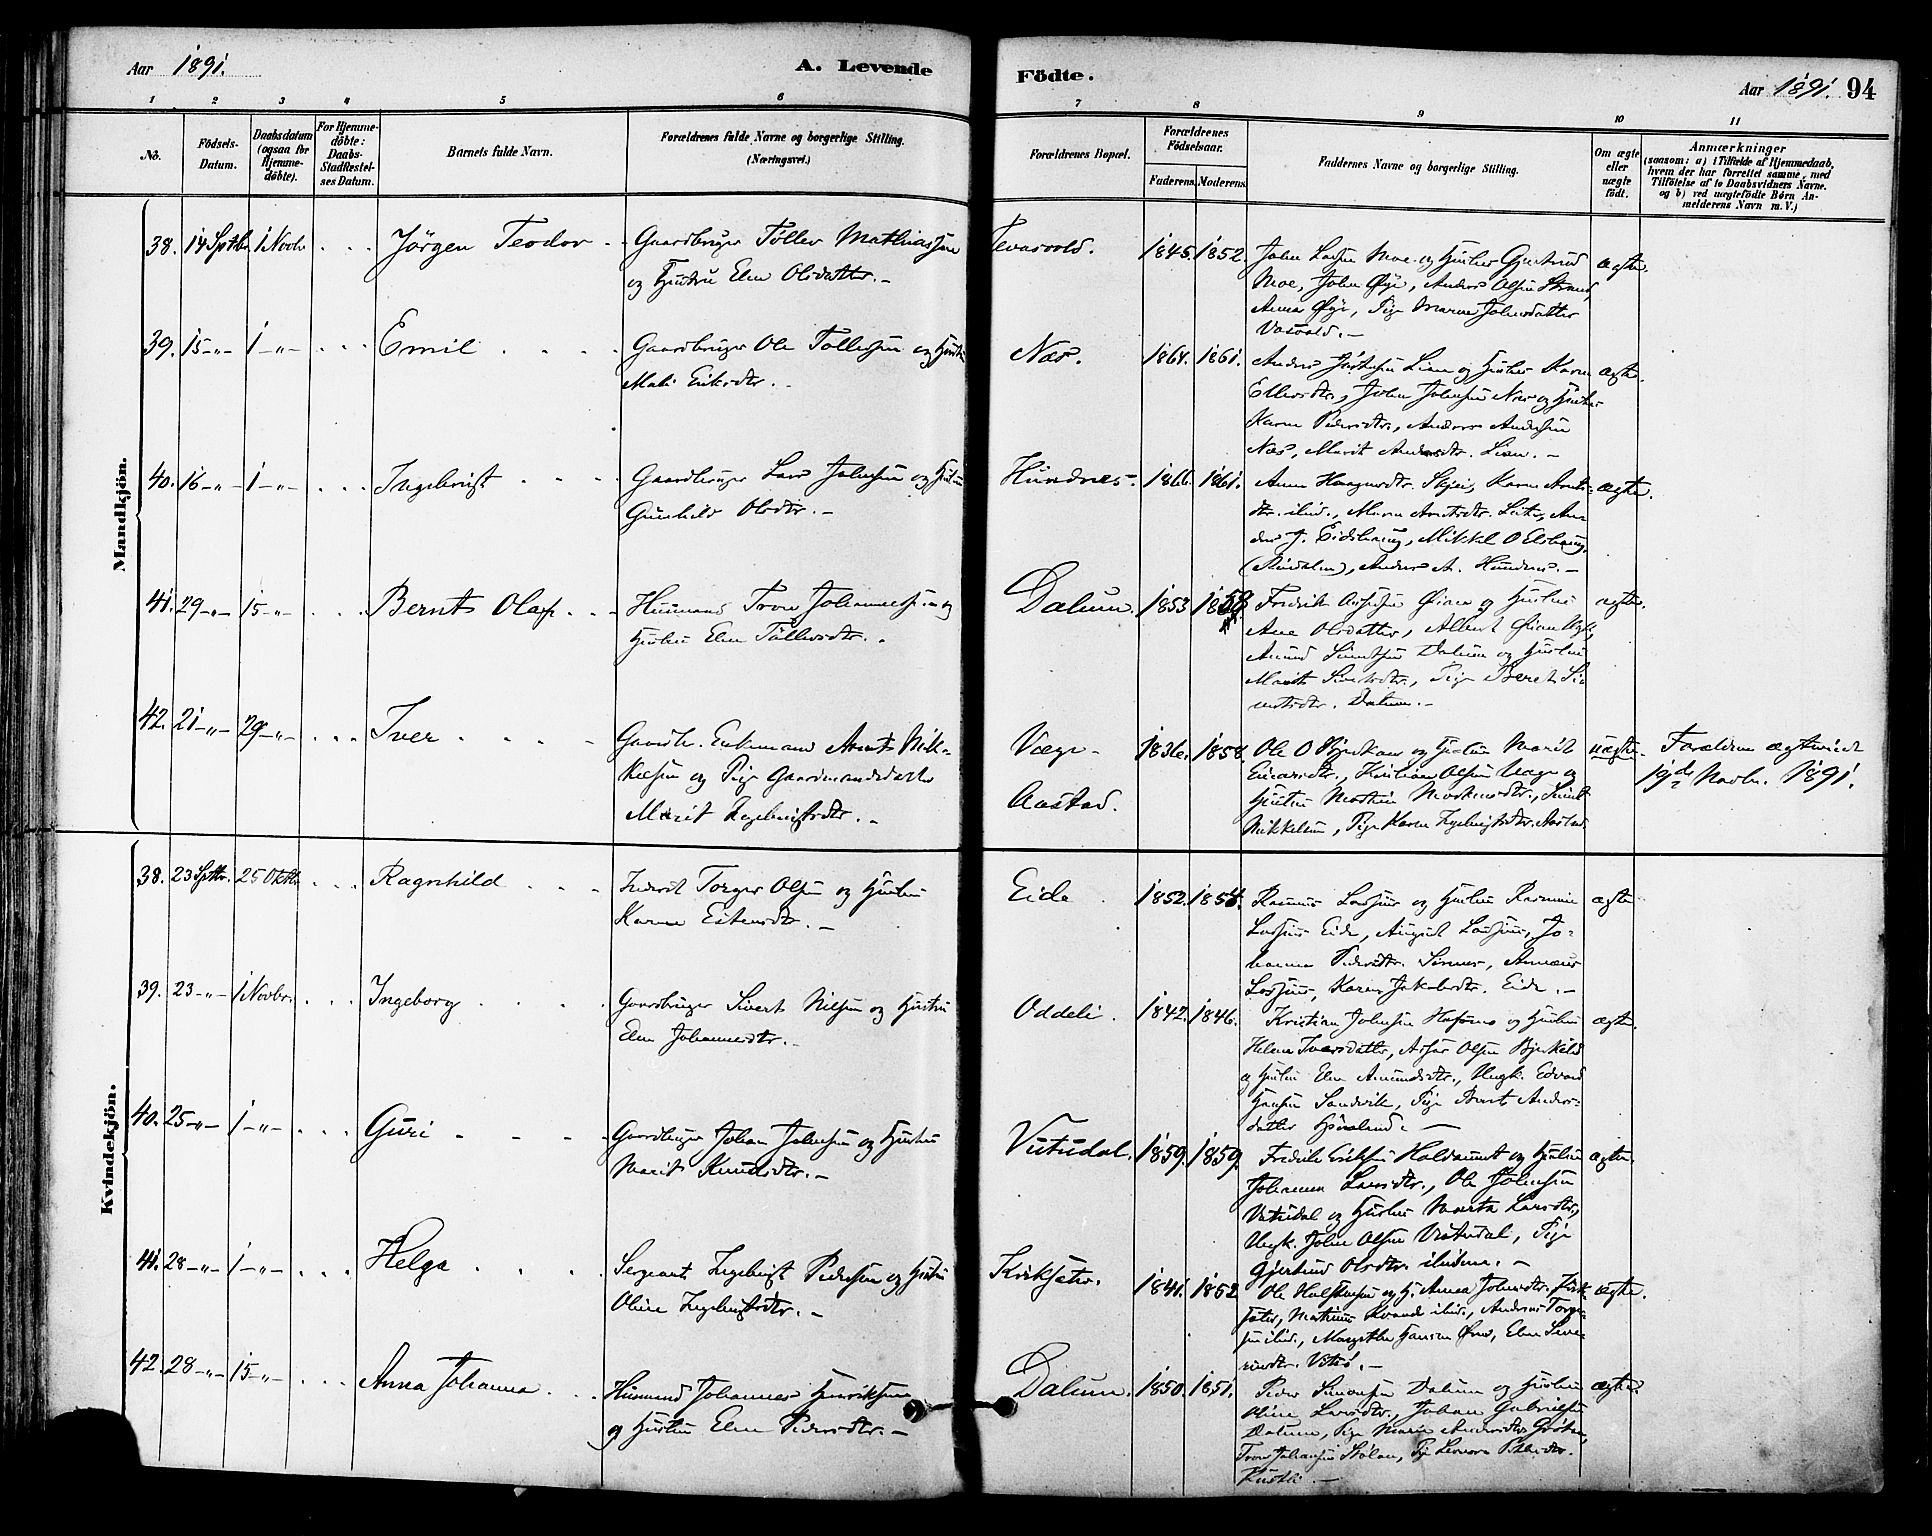 Aar 1891.
A. Levende
Födte.
Aar 1891. 94
1 2 3 4 5 6 7 8 9 10 11
No.
Födsels-Datum.
Daabsdatum (ogsaa for Hjemme-döbte).
For Hjemme-döbte: Daabs-Stadfæstel-ses Datum.
Barnets fulde Navn.
Forældrenes fulde Navne og borgerlige Stilling. (Næringsvei.)
Forældrenes Bopæl.
Forældrenes Födselsaar.
Faderens. Moderens.
Faddernes Navne og borgerlige Stilling.
Om ægte eller uægte födt.
Anmærkninger
(saasom: a) i Tilfælde af Hjemmedaab,
hvem der har forrettet samme, med
Tilföielse af to Daabsvidners Navne.
og b) ved uægtefödte Börn An-
melderens Navn m. V.)
Mandkjön.
38. 14 Septbr. 1 Novbr. Jörgen Teodor Gaardbruger Tollev Mathiassen
og Hustru Elen Olsdatter.
1845. 1852. John Larsen Moe og Hustru Gjertrud
Moe, John Øye, Anders Olsen Strand,
Anna Øye, Pige Maren Johnsdatter
ægte.
39. 15 -"- 1 -"- Emil Gaardbruger Ole Tollefsen og Hustru
Mali Eriksdtr.
Næs. 1864. 1861. Anders Lien og Hustru Karen
Ellevsdtr., John Johnsen Næs og Hustru
Karen Pedersdtr., Anders Andersen
Næs, Marit Andersdtr. Lien.
ægte.
40. 16 -"- 1 -"- Ingebrigt Gaardbruger Lars Johnsen og Hustru
Gunhild Olsdtr.
Hundnes 1866. 1861. Anne Haagensdtr. Skjei, Karen Arnts-
dtr. ibid., Maren Arntsdtr. An-
ders J. Eidshaug, Mikkel O
(Rindalen), Anders A. Hundnes.
ægte.
41. 29 -"- 15 -"- Bernt Olaf Husmand Tron Johannessen og
Hustru Elen Tollevsdtr.
Dalum. 1853 1858 Fredrik Øien og Hustru
Ane Olsdatter, Albert Øien Ugk.,
Amund Sivertsen Dalum og Hustru
Marit Sivertsdtr., Pige Beret Si-
vertsdtr. Dalum.
ægte.
42. 21 -"- 29 -"- Iver Gaardb. Enkemand Arnt Mik-
kelsen og Pige Gaardmandsdatter
Marit Ingebrigtsdtr.
Vaage
Aastad. 1836. 1858. Ole O og Hustru Marit
Kristian Olsen Vaage og
Hustru Sivert
Mikkelsen, Pige Karen Ingebrigtsdtr. Aastad.
uægte. Forældrene ægteviede
19de Novbr. 1891.
Kvindekjön.
38. 23 Septbr. 25 Oktbr. Ragnhild Inderst Torger Olsen og Hustru
Karen Estensdtr.
Eide 1852. 1854. Rasmus Larsen og Hustru
Larsen Eide, August Larsen, Jo-
hanna Pedersdtr.
Larsen, Karen Jakobsdtr. Eide.
ægte.
39. 23 -"- 1 Novbr. Ingeborg Gaardbruger Sivert Nilsen og Hustru
Elen Johannesdtr.
Oddeli. 1842. 1846. Kristian Johnsen og Hustru
Helene Iversdatter, Olsen
og Hustru Elen Amundsdtr., Ungk. Edvard
Hansen Sandvik, Pige Beret Anders-
datter
ægte.
40. 25 -"- 1 -"- Guri Gaardbruger Johan Johnsen og Hustru
Marit Knudsdtr.
Vutudal. 1859. 1859. Fredrik Eriksen og Hustru
Johanna Larsdtr., Ole Johnsen
Vutudal og Hustru Marta Larsdtr.,
Ungk. John Olsen Vutudal, Pige
Gjertrud Olsdtr. ibidem.
ægte.
41. 28 -"- 1 -"- Helga Sergeant Ingebrigt Pedersen og Hustru
Oline Ingebrigtsdtr.
1841. 1852 Ole og H. Anna Johnsdtr.
ibid., Andreas
ibid., Hansen Elen
ægte.
42. 28 -"- 15 -"- Anna Johanna Husmand Johannes Henriksen
og Hustru Elen Pedersdtr.
Dalum. 1850. 1851. Peder Simonsen Dalum og Hustru
Oline Larsdtr., Johan Gabrielsen
Dalum, Pige Marie Andersdtr.
Tron Johansen Pige
ægte.